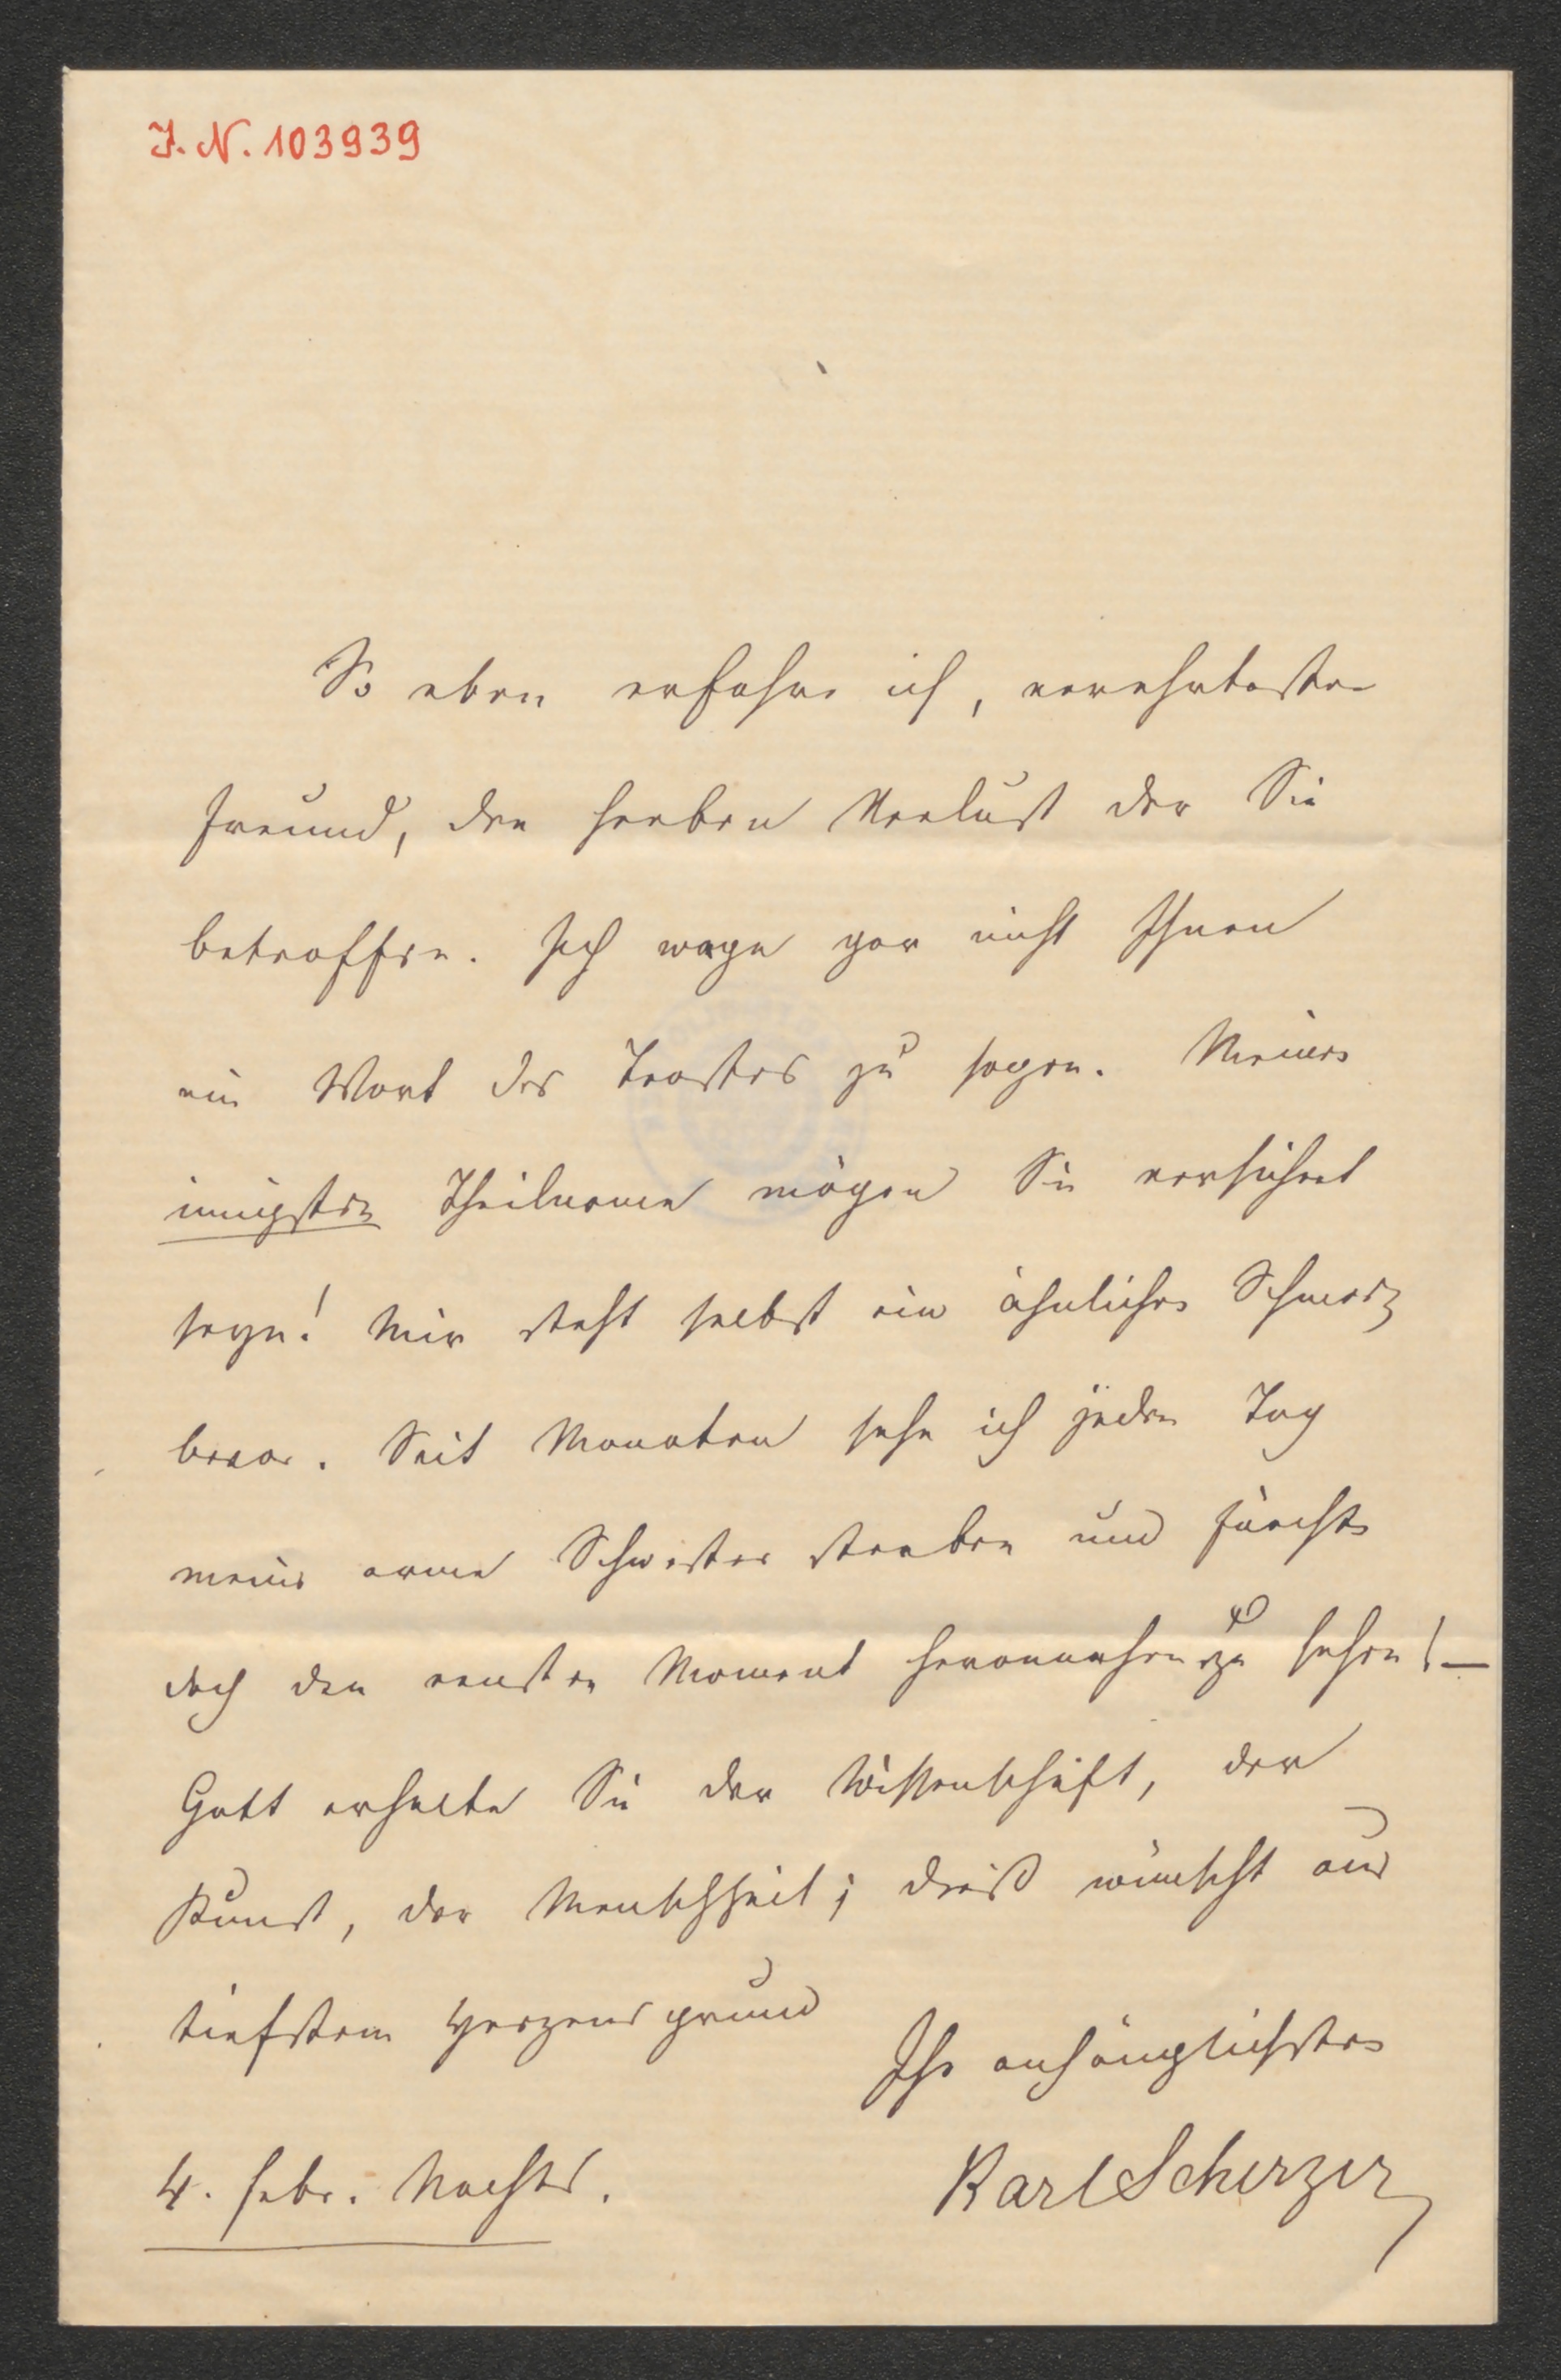 I. N. 103939
So eben erfahre ich, verehrtester
Freund, den herben Verlust der Sie
betroffen. Ich wage gar nicht Ihnen
ein Wort des Trostes zu sagen. Meiner
innigsten Theilname mögen Sie versichert
seyn! Mir steht selbst ein ähnlicher Schmerz
bevor. Seit Monaten sehe ich jeden Tag
meine arme Schwester sterben und fürchte
doch den ernsten Moment herannahen zu sehen! —
Gott erhalte Sie der Wissenschaft, der
Kunst, der Menschheit; dieß wünscht aus
tiefstem Herzensgrund
Ihr anhänglichster
Karl Scherzer
4. Febr. Nachts.